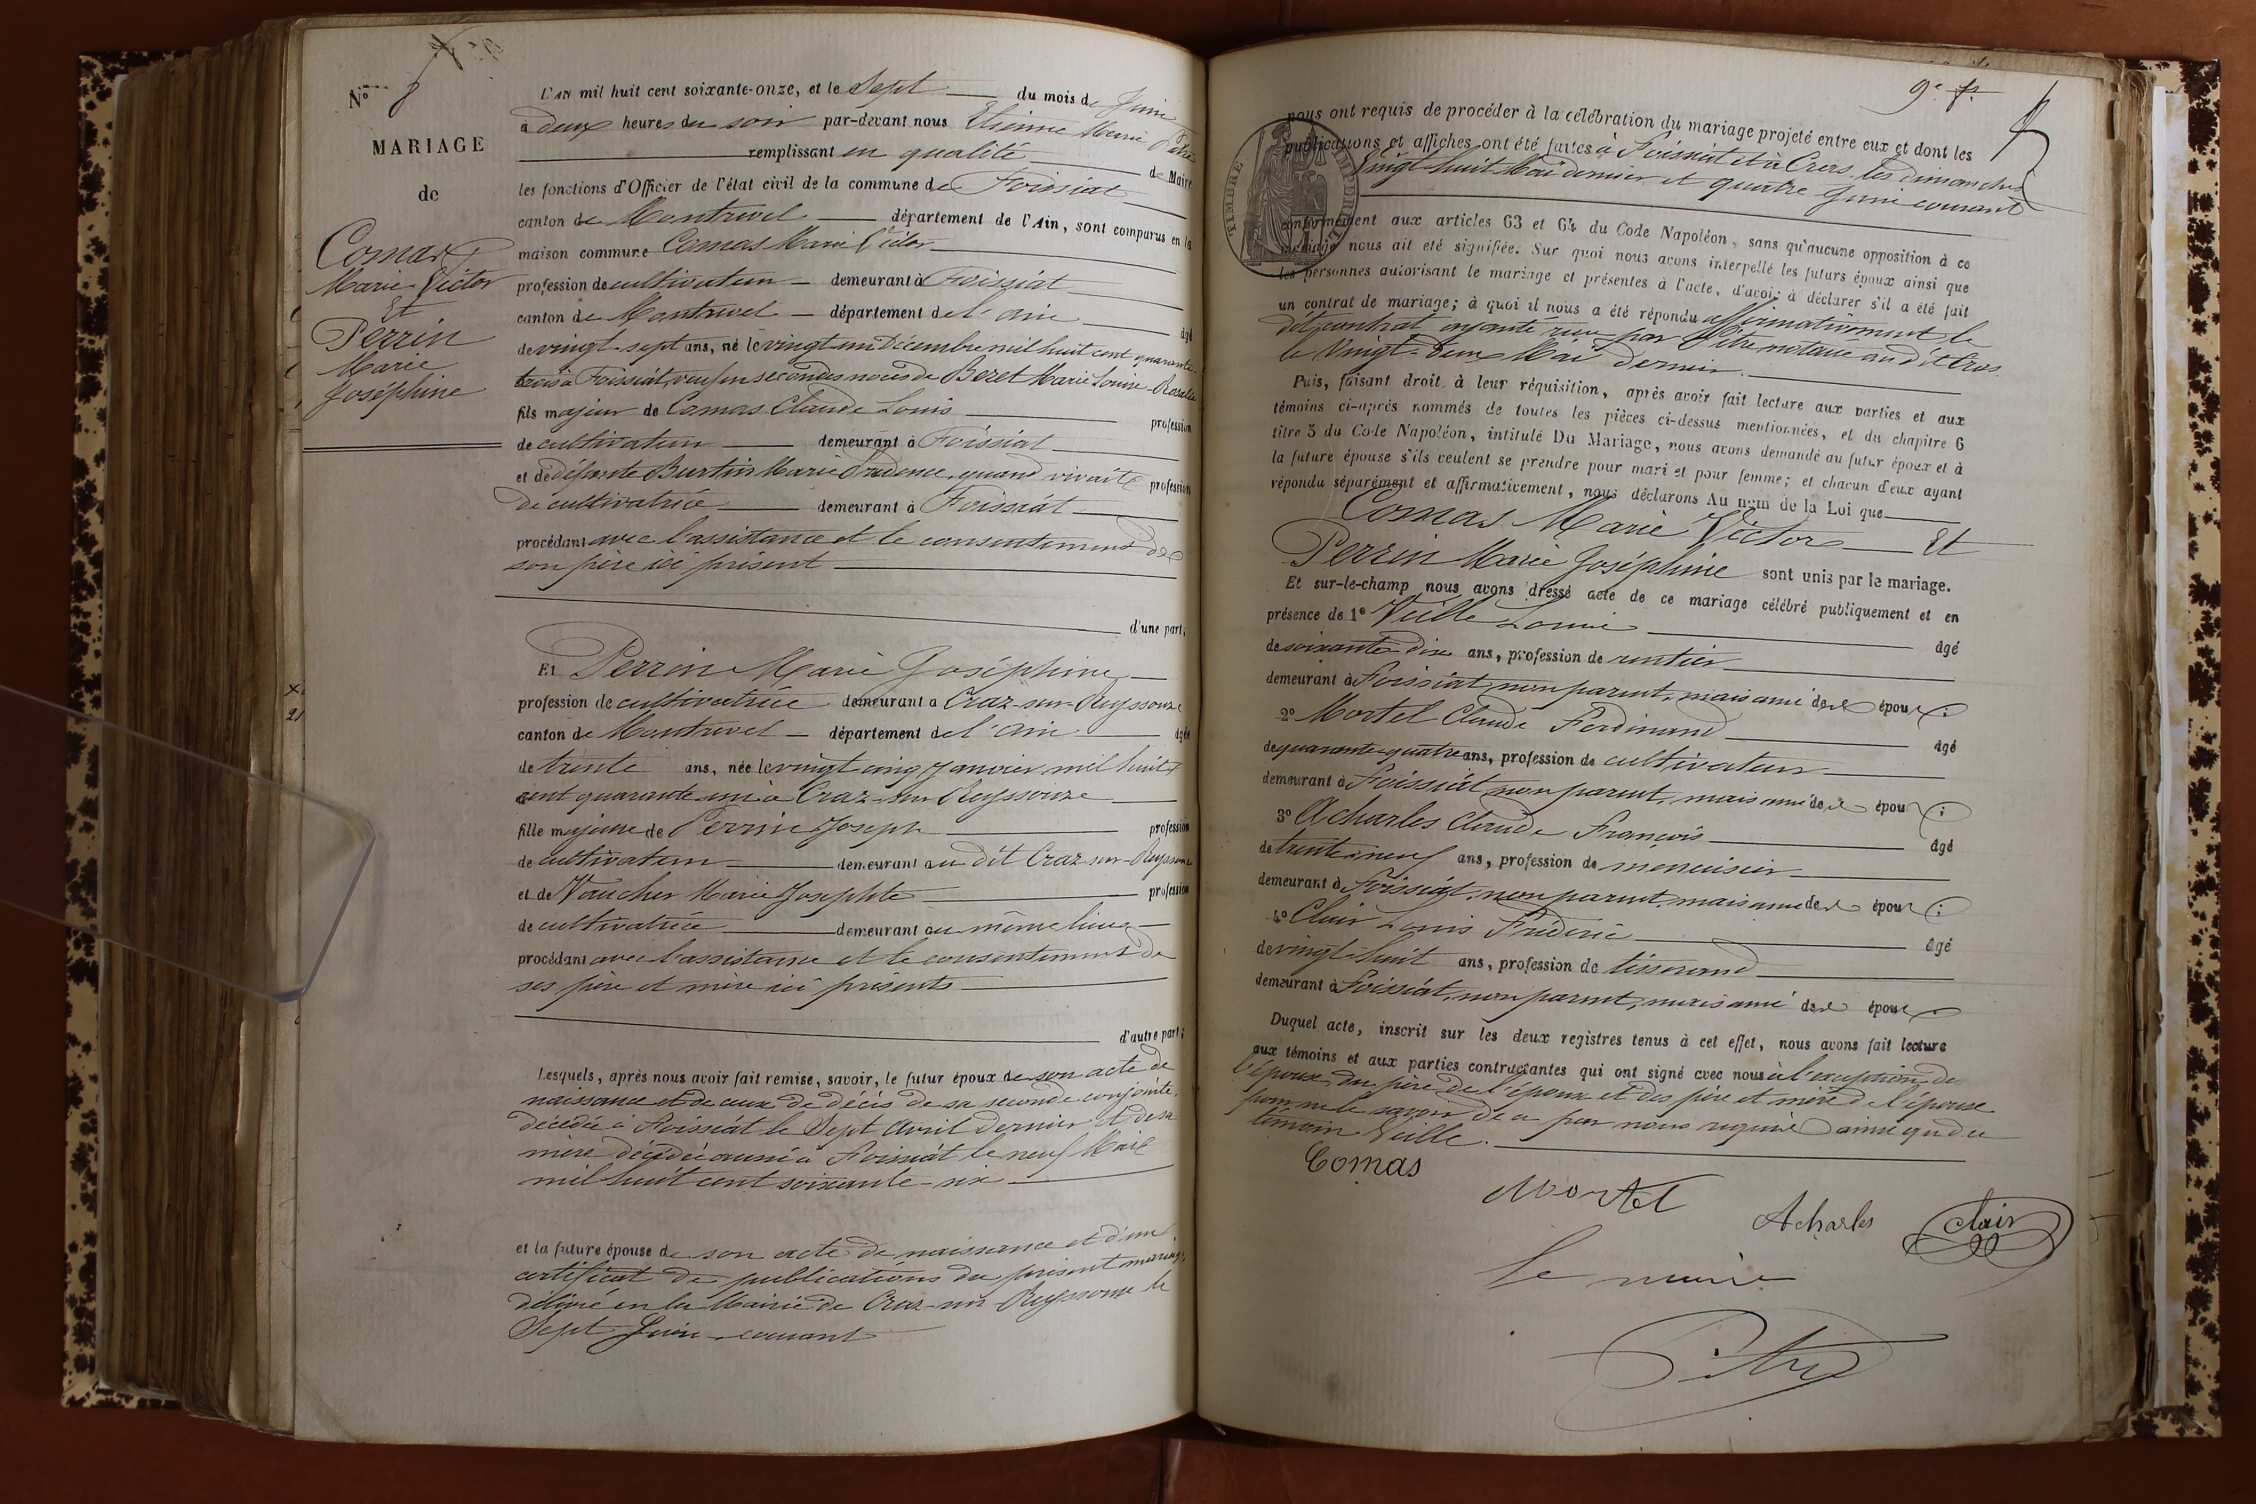 N° 8
MARIAGE
de
Comas
Marie Victor
Et
Perrin
Marie
Joséphine
L'AN mil huit cent soixante-onze, et le Sept du mois de Juin
à deux heures du soir par-devant nous Etienne Marie Pitre
remplissant en qualité de Maire
les fonctions d'Officier de l'état civil de la commune de Foissiat
canton de Montrevel département de l'Ain, sont comparus en la
maison commune Comas Marie Victor
profession de cultivateur demeurant à Foissiat
canton de Montrevel département de l'ain âgé
de vingt-sept ans, né le vingt un Décembre mil huit cent quarante
trois à Foissiat, veuf en secondes noces de Beret Marie Louise Rosalie
fils majeur de Comas Claude Louis profession
de cultivateur demeurant à Foissiat
et de défunte Burtin Marie Prudence, quand vivait profession
de cultivatrice demeurant à Foissiat
procédant avec l'assistance et le consentement de
son père ici présent
d'une part;
Et Perrin Marie Joséphine
profession de cultivatrice demeurant à Craz-sur-Reyssouze
canton de Montrevel département de l'ain âgée
de trente ans, née le vingt cinq Janvier mil huit
cent quarante un à Craz-sur Reyssouze
fille majeure de Perrin Joseph profession
de cultivateur demeurant au dit Craz-sur-Reyssouze
et de Vaucher Marie Josephte profession
de cultivatrice demeurant au même lieu
procédant avec l'assistance et le consentement de
ses père et mère ici présents
d'autre part;
Lesquels, après nous avoir fait remise, savoir, le futur époux de son acte de
naissance et de ceux de décès de sa seconde conjointe,
décédée à Foissiat le Sept Avril dernier et de sa
mère décédée aussi à Foissiat le neuf Mai
mil huit cent soixante-six
et la future épouse de son acte de naissance et d'un
certificat de publications du présent mariage
délivré en la Mairie de Craz-sur Reyssouze le
Sept Juin courant
9e f.
nous ont requis de procéder à la célébration du mariage projeté entre eux et dont les
publications et affiches ont été faites à Foissiat et à Cras, les dimanches
Vingt-huit Mai dernier et quatre Juin courant
conformément aux articles 63 et 64 du Code Napoléon, sans qu'aucune opposition à ce
mariage nous ait été signifiée. Sur quoi nous avons interpellé les futurs époux ainsi que
les personnes autorisant le mariage et présentes à l'acte, d'avoir à déclarer s'il a été fait
un contrat de mariage; à quoi il nous a été répondu affirmativement le
dit contrat ayant été reçu par Pitre notaire au dit Cras
le Vingt-deux Mai dernier.
Puis, faisant droit à leur réquisition, après avoir fait lecture aux parties et aux
témoins ci-après nommés de toutes les pièces ci-dessus mentionnées, et du chapitre 6
titre 5 du Code Napoléon, intitulé Du Mariage, nous avons demandé au futur époux et à
la future épouse s'ils veulent se prendre pour mari et pour femme; et chacun d'eux ayant
répondu séparément et affirmativement, nous déclarons Au nom de la Loi que
Comas Marie Victor Et
Perrin Marie Joséphine sont unis par le mariage.
Et sur-le-champ nous avons dressé acte de ce mariage célébré publiquement et en
présence de 1° Veille Louis âgé
de soixante dix ans, profession de rentier
demeurant à Foissiat, non parent, mais ami de l'époux;
2° Mortel Claude Ferdinand âgé
de quarante-quatre ans, profession de cultivateur
demeurant à Foissiat non parent, mais ami de l'époux;
3° Acharles Claude François âgé
de trente-neuf ans, profession de menuisier
demeurant à Foissiat, non parent, mais ami de l'époux;
4° Clair Louis Frédéric âgé
de vingt-huit ans, profession de tisserand
demeurant à Foissiat, non parent, mais ami de l'époux.
Duquel acte, inscrit sur les deux registres tenus à cet effet, nous avons fait lecture
aux témoins et aux parties contractantes qui ont signé avec nous à l'exception de
l'épouse, du père de l'époux et des père et mère de l'épouse
pour ne le savoir de ce par nous requis ainsi que du
témoin Veille.
Comas
Mortel
Acharles
Clair
Le maire
Pitre